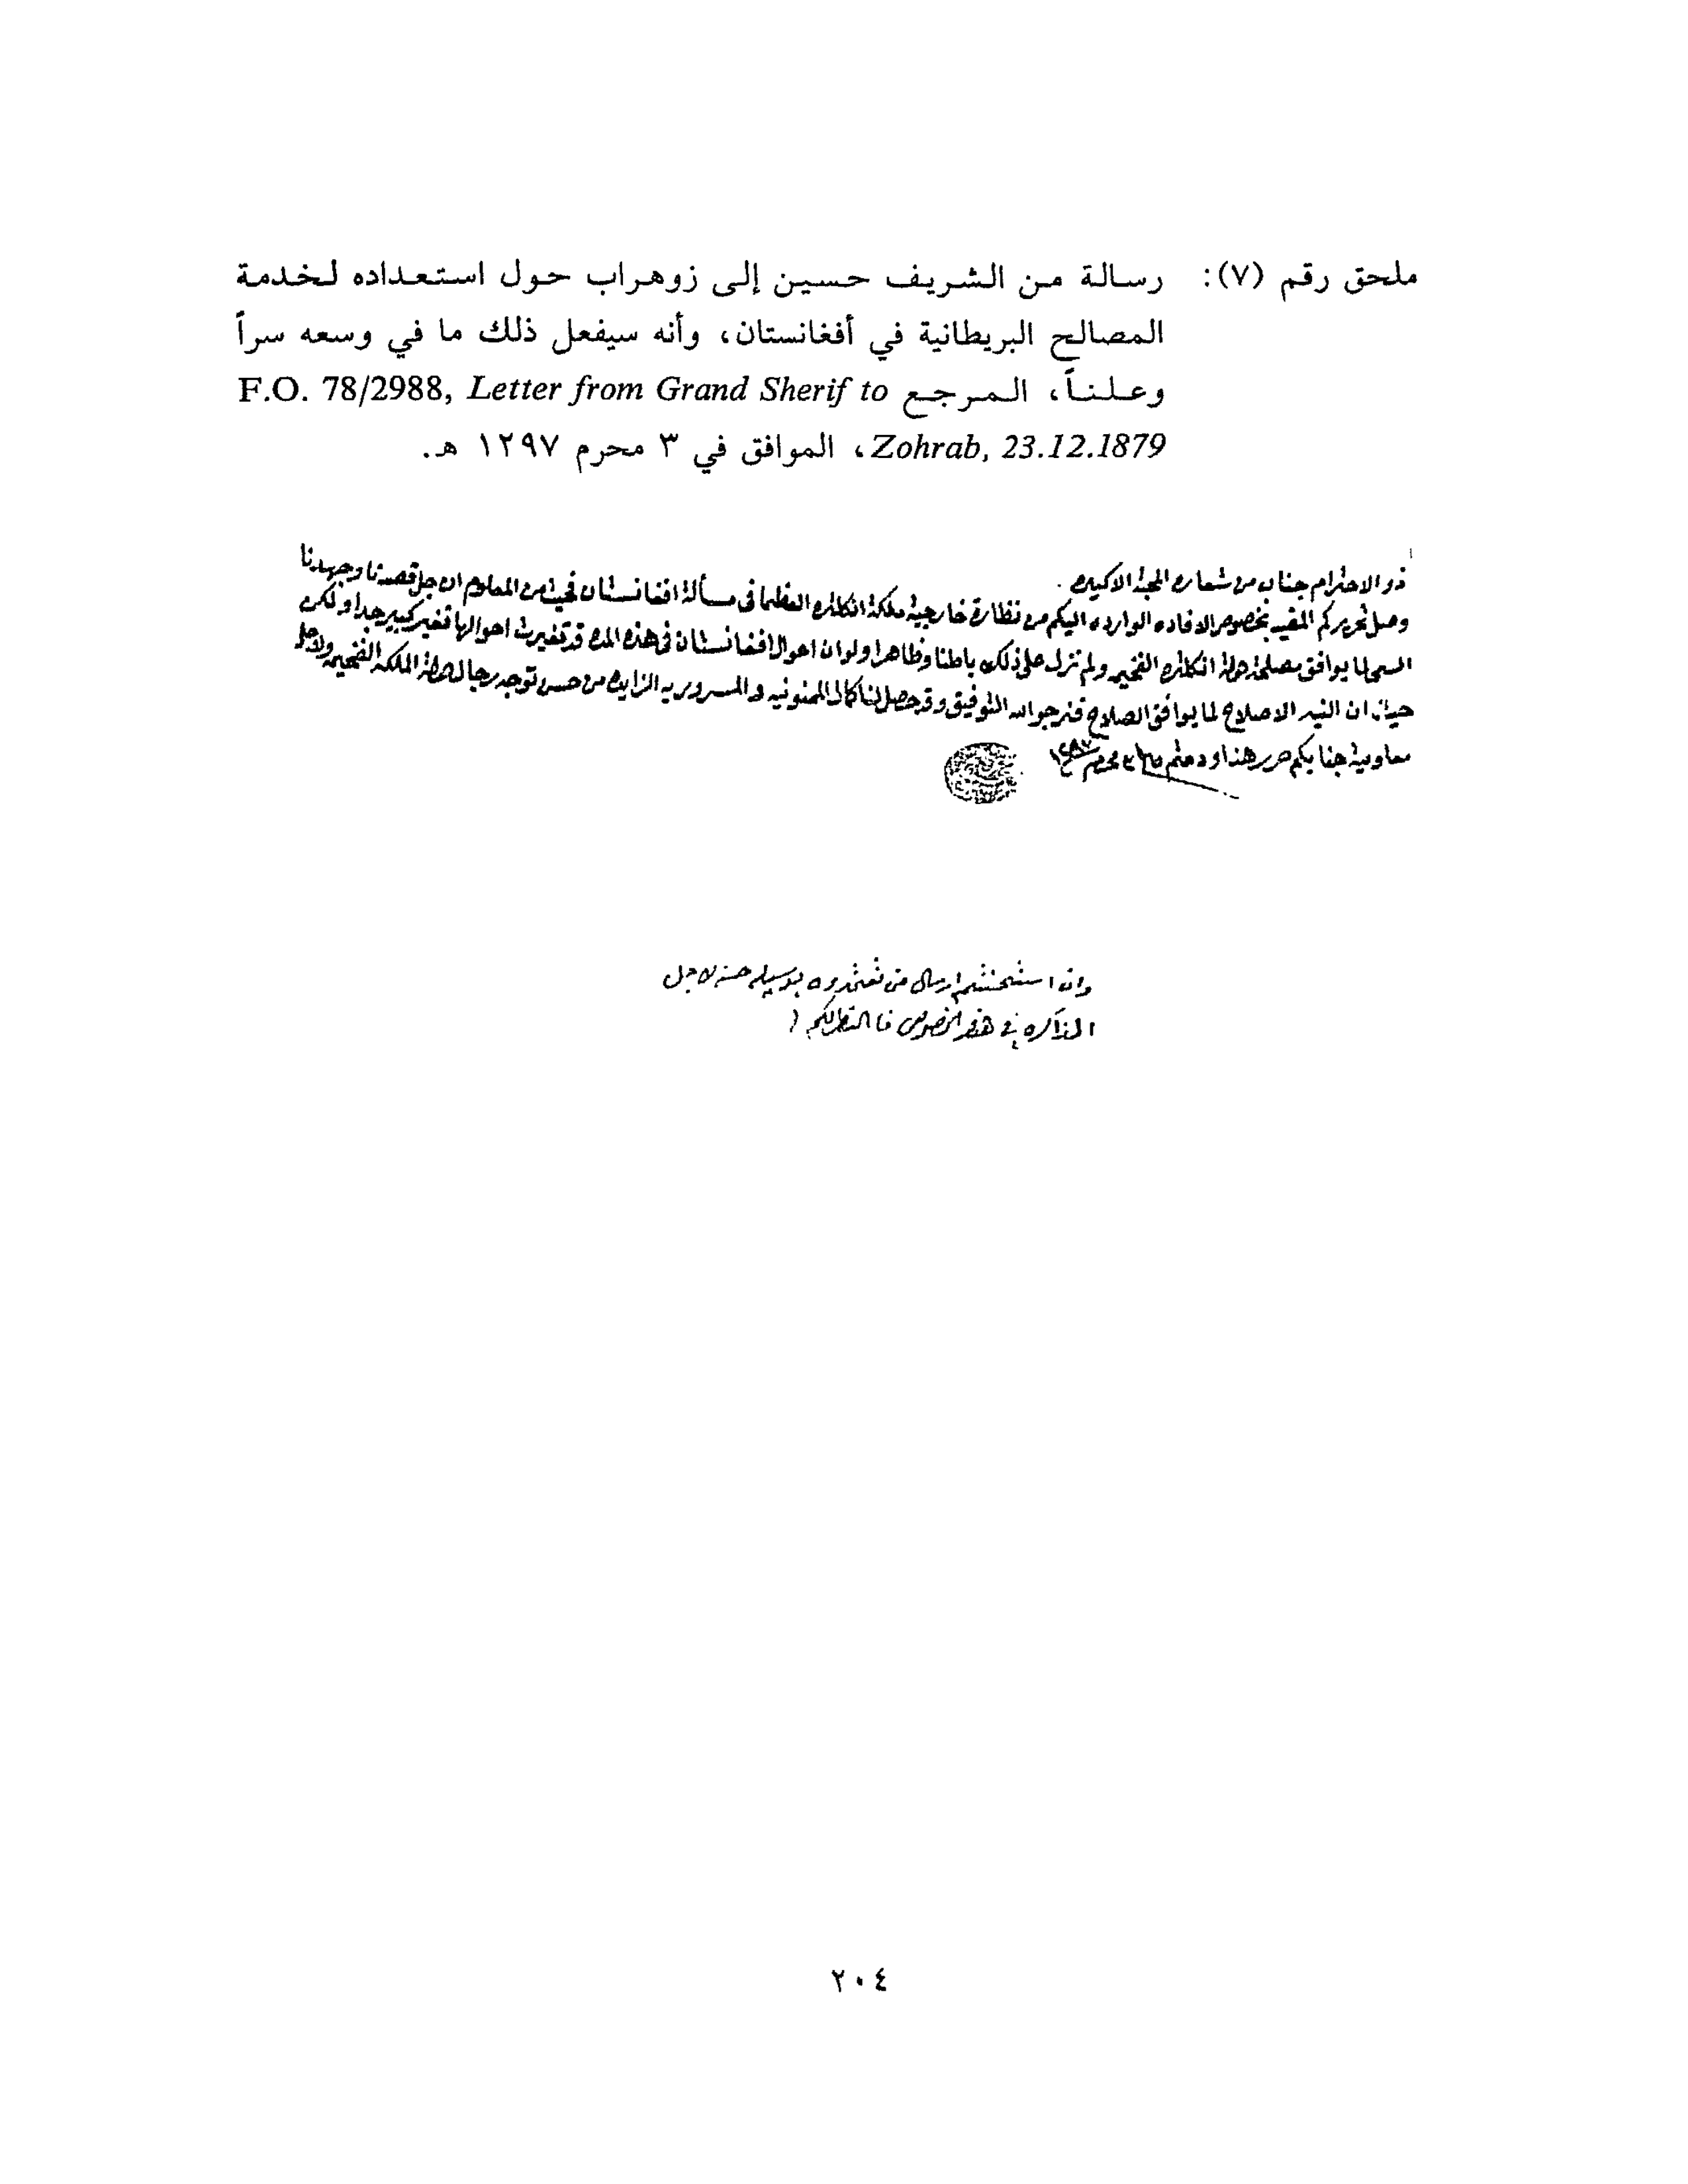 ملحق رقم (٧): رسالة من الشريف حسين إلى زوهراب حول استعداده لخدمة
المصالح البريطانية في أفغانستان، وأنه سيفعل ذلك ما في وسعه سراً
وعلناً، المرجع F.O. 78/2988, Letter from Grand Sherif to
Zohrab, 23.12.1879، الموافق في ٣ محرم ١٢٩٧ هـ.
ذو الاحترام جناب من شعاره المحبة الاكيده
وصل تحريركم بخصوص الافاده الوارده اليكم من نظارة خارجية مملكة انكلتره العظما فى مسألة افغانستان فحيث من المعلوم ان جل قصدنا وجهدنا
السعى لما يوافق مصلحة دولة انكلتره الفخيمه ولم نزل على ذلك باطنا وظاهرا ولو ان احوال افغانستان فى هذه المده قد تغيرت احوالها تغير كبير جدا ولكن
حيث ان النيه الاصلاح لما يوافق الصلاح فنرجو الله التوفيق وقد حصل لنا كمال الممنونيه والمسروريه الزايده من حسن توجه رجال دولة الملكه الفخيمه ولاجل
معلومية جنابكم حرر هذا ودمتم ٣ محرم ١٢٩٧
وان استحسنتم ارسال من تعتمدوه بوسيله حسنه لاجل
المذاكره في هذا الخصوص فالنظر لكم
٢٠٤